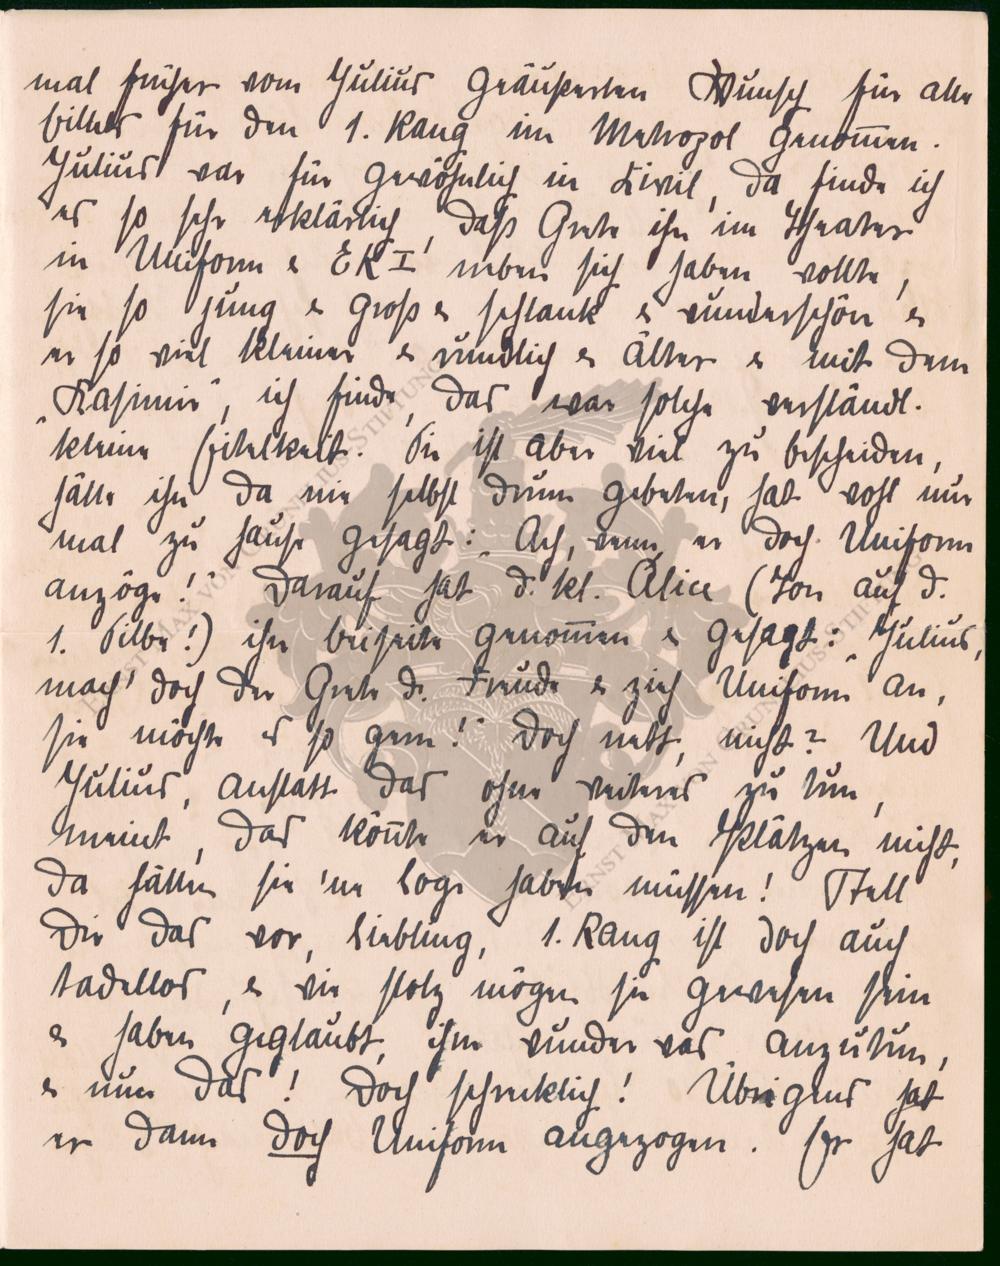 mal früher vom Julius geäußerten Wunsch für alle
Billets für den 1. Rang im Metropol genom̅en.
Julius war für gewöhnlich in Zivil, da finde ich
es so sehr erklärlich, daß Grete ihn im Theater
in Uniform & EK I neben sich haben wollte,
sie so jung & groß & schlank & wunderschön &
er so viel kleiner & rundlich & älter & mit dem
„Kasimir“, ich finde, das war solche verständl.
kleine Eitelkeit. Sie ist aber viel zu bescheiden,
hätte ihn da nie selbst drum gebeten, hat wohl nur
mal zu Hause gesagt: „Ach, wenn er doch Uniform
anzöge!“ Darauf hat d. kl. Alice (Ton auf d.
1. Silbe!) ihn beiseite genom̅en & gesagt: „Julius,
mach' doch der Grete d. Freude & zieh Uniform an,
sie möchte es so gern!“ Doch nett, nicht? Und
Julius, anstatt das ohne weiteres zu tun,
meint, das kön̅te er auf den Plätzen nicht,
da hätten sie 'ne Loge haben müssen! Stell
Dir das vor, Liebling, 1. Rang ist doch auch
tadellos, & wie stolz mögen sie gewesen sein
& haben geglaubt, ihm wunder was anzutun,
& nun das! Doch schrecklich! Übrigens hat
er dann doch Uniform angezogen. Er hat